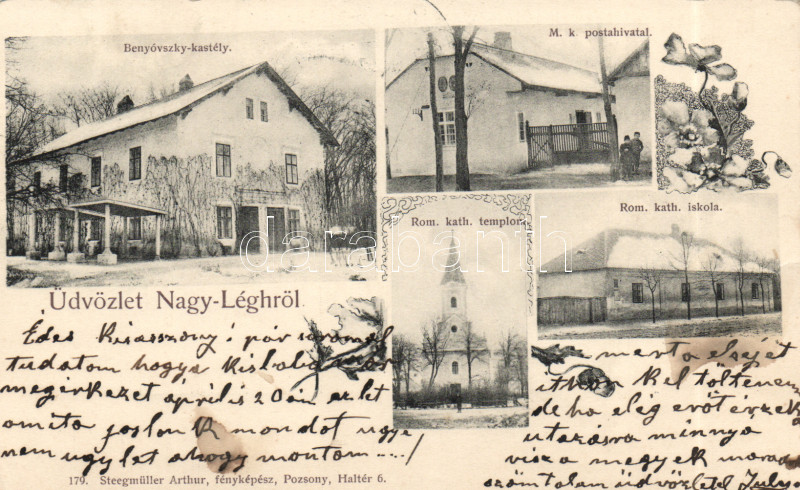 Benyóvszky-kastély.
M. k. postahivatal.
Rom. kath. templom
Rom. kath. iskola.
darabanth
Üdvözlet Nagy-Léghről
Édes Kisasszony! pár soromal
tudatom hogy a kisbaba már
megérkezet április 20án ez let
amita joslok mondot ugye
nem ugy let ahogy montam...!
merta elsejét
itkon kel töltenem
de ha elég erőt érzek
utazásra mindjá
visza megyek marad
számtalan üdvözlettel July
179. Steegmüller Arthur, fényképész, Pozsony, Haltér 6.